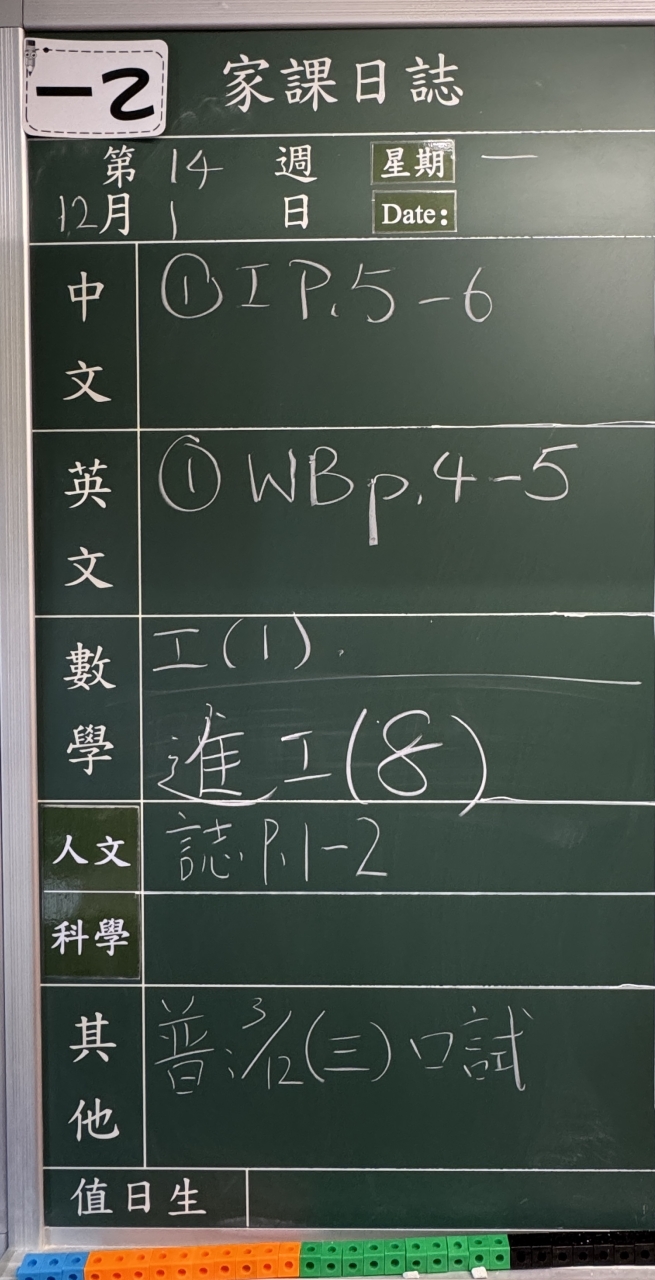 一2
家課日誌
第 14 週 星期 一
12月 1 日 Date:
中文
① I P.5-6
英文
① WB p.4-5
數學
工(1).
進工(8)
人文
誌 P.1-2
科學
其他
普: 3/12(三)口試
值日生